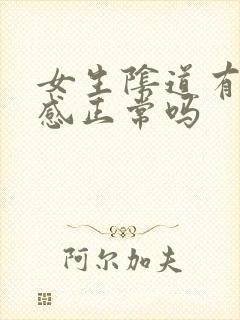 女生陰道有
感正常吗
阿尔加夫